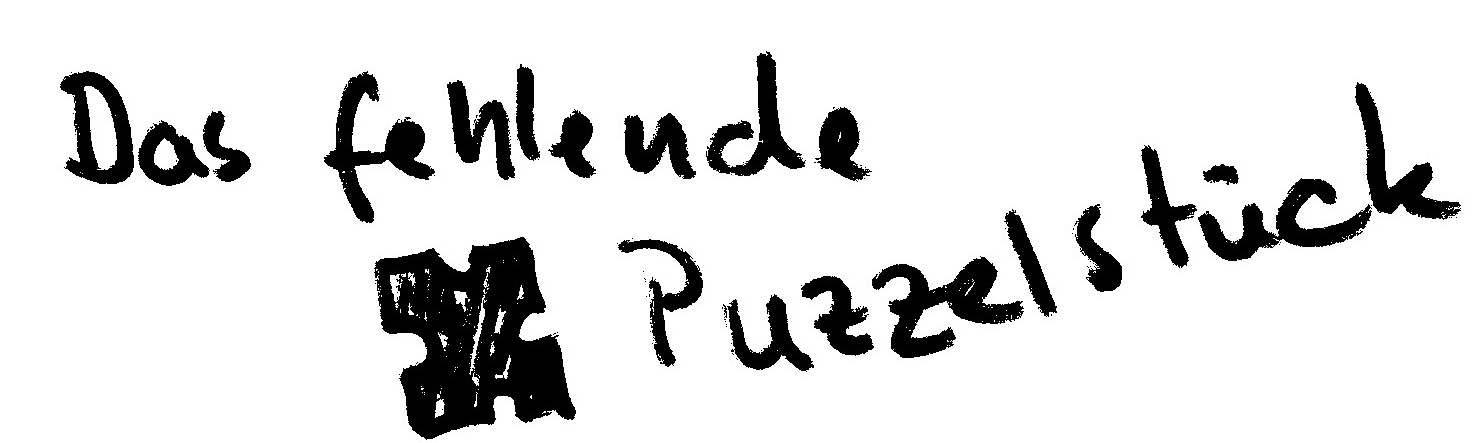 Das fehlende
Puzzelstück